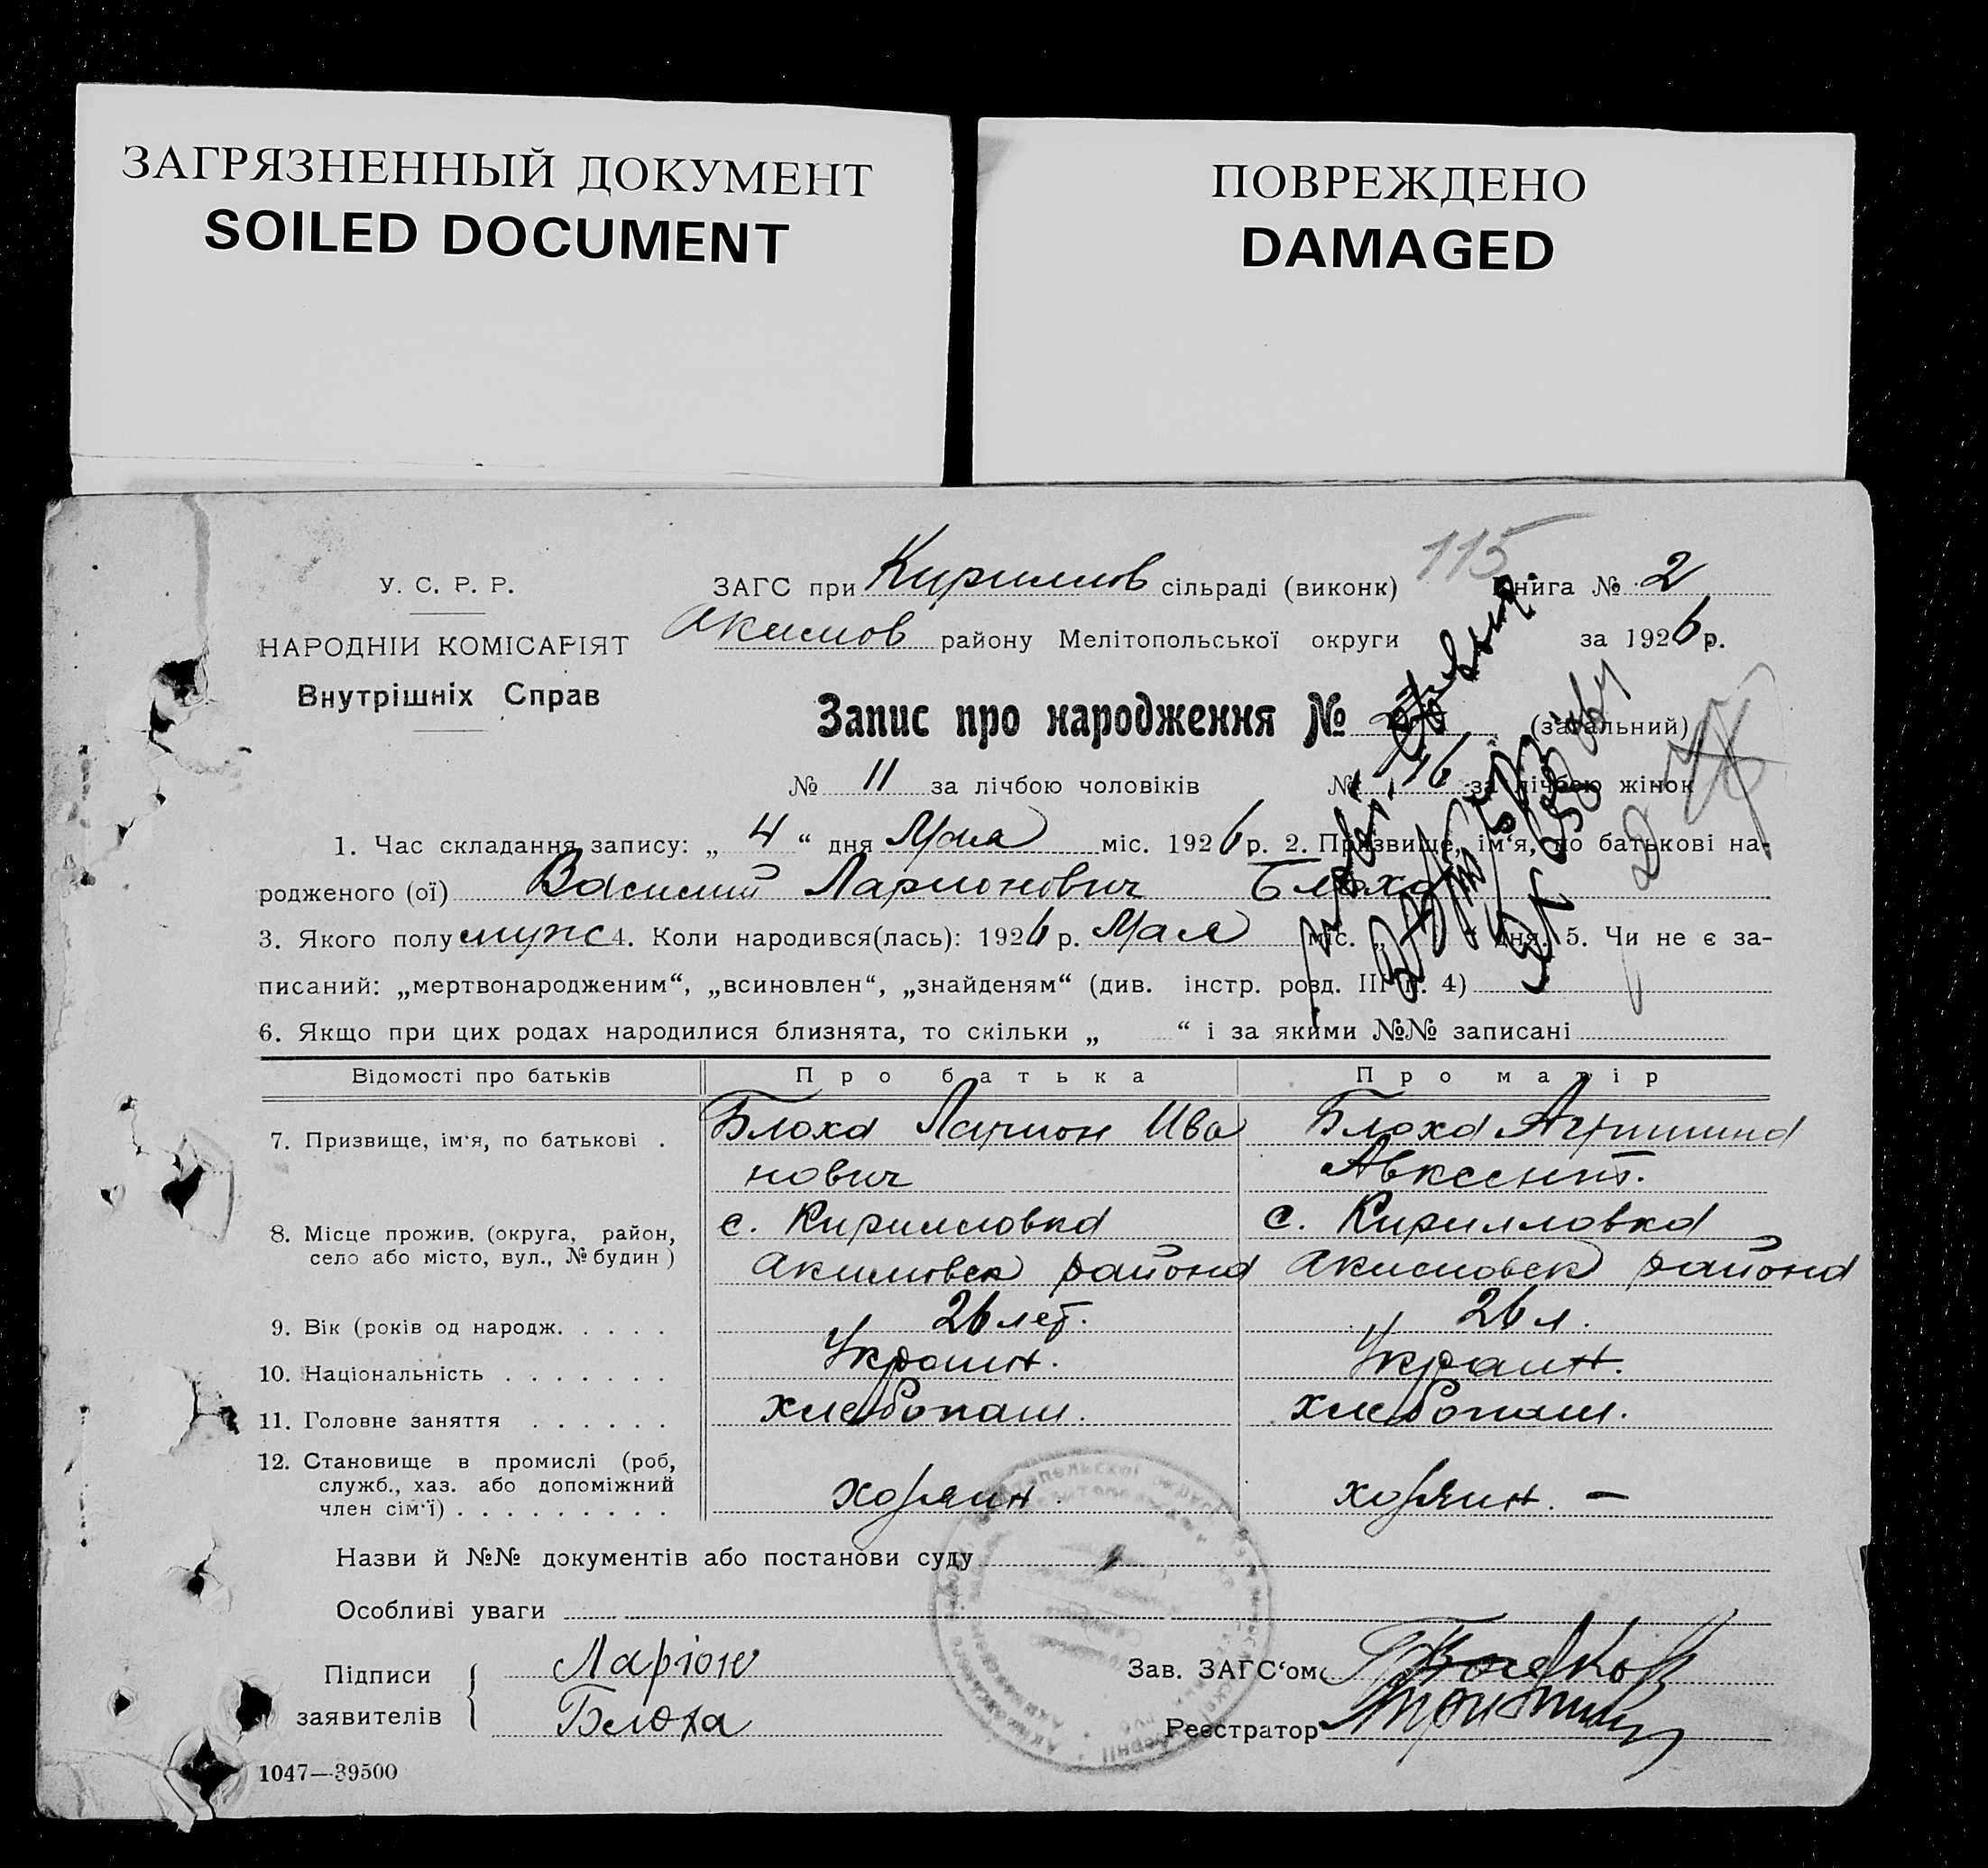 ЗАГРЯЗНЕННЫЙ ДОКУМЕНТ
SOILED DOCUMENT
ПОВРЕЖДЕНО
DAMAGED
115
У. С. Р. Р.
НАРОДНІЙ КОМІСАРІЯТ
Внутрішніх Справ
ЗАГС при Кириллов сільраді (виконк) Книга № 2
Акимов району Мелітопольської округи за 1926 р.
Запис про народження № (загальний)
№ 11 за лічбою чоловіків № за лічбою жінок
1. Час складання запису: „ 4 “ дня Мая міс. 1926 р. 2. Призвище, ім‘я, по батькові на-
родженого (ої) Василий Ларионович Блоха
3. Якого полу муж 4. Коли народився(лась): 1926 р. Мая міс. „ “ дня. 5. Чи не є за-
писаний: „мертвонародженим“, „всиновлен“, „знайденям“ (див. інстр. розд. III п. 4)
6. Якщо при цих родах народилися близнята, то скільки „ “ і за якими №№ записані
Відомості про батьків Про батька Про матір
7. Призвище, ім‘я, по батькові . Блоха Ларион Ива Блоха Агрипина
нович Авксент.
8. Місце прожив. (округа, район, с. Кирилловка с. Кирилловка
село або місто, вул., № будин ) Акимовск района Акимовск района
9. Вік (років од народж. . . . . 26 лет. 26 л.
10. Національність . . . . . . . Украин. Украин.
11. Головне заняття . . . . . . хлебопаш. хлебопаш.
12. Становище в промислі (роб,
служб., хаз. або допоміжний хозяин. хозяин. –
член сім‘ї) . . . . . . . . .
Назви й №№ документів або постанови суду
Особливі уваги
Підписи Ларіон Зав. ЗАГС‘ом
заявителів Блоха Реєстратор
1047—39500